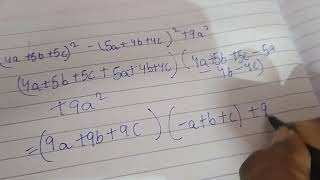 (4a+5b+5c)² - (5a+4b+4c)² + 9a²
(4a+5b+5c + 5a+4b+4c) (4a+5b+5c - 5a
- 4b - 4c)
+ 9a²
= (9a+9b+9c) (-a+b+c) + 9